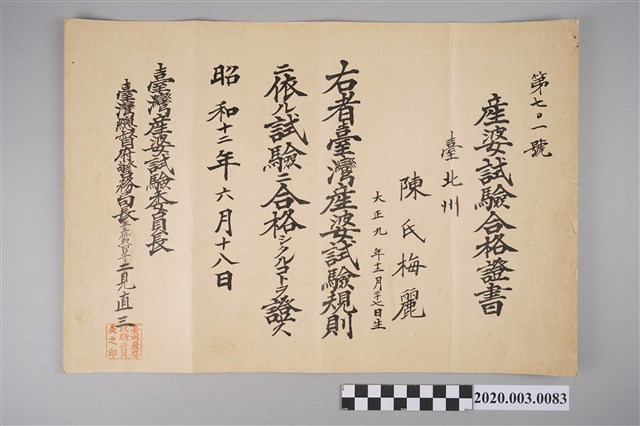 第七〇一號
産婆試驗合格證書
臺北州
陳氏梅麗
大正九年十二月廿七日生
右者臺灣産婆試驗規則
ニ依ル試驗ニ合格シタルコトヲ證ス
昭和十二年六月十八日
臺灣産婆試驗委員長
臺灣總督府警務局長正五位勳四等二見直三
2020.003.0083